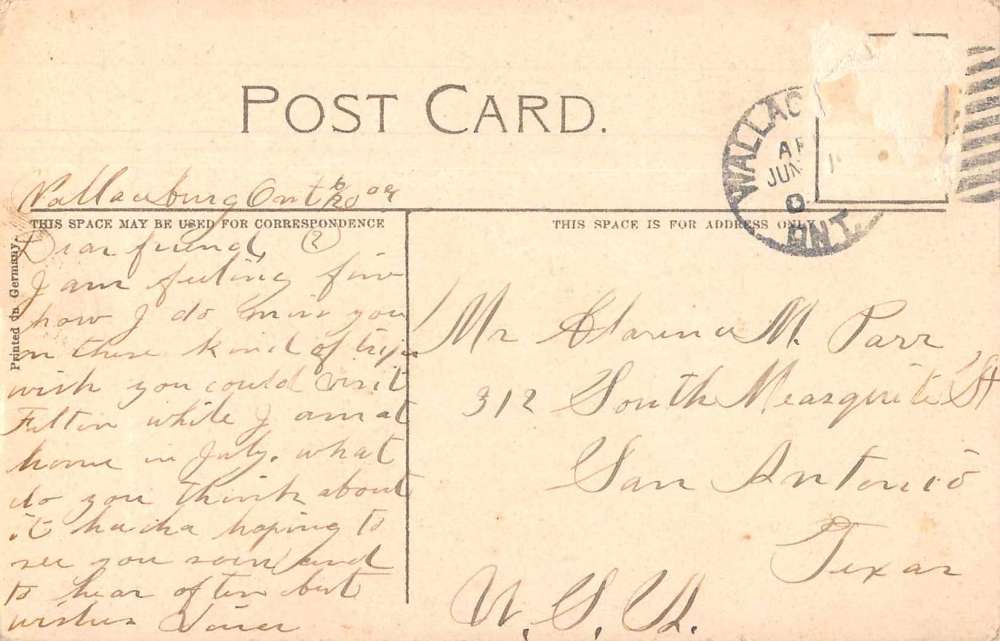 POST CARD.
WALLAC
JUN
ONT.
Wallaceburg Ont 6/20 09
THIS SPACE MAY BE USED FOR CORRESPONDENCE
THIS SPACE IS FOR ADDRESS ONLY
Printed in Germany.
Dear friend, (2)
I am feeling fine
how I do miss you
on these kind of trips
wish you could visit
Felton while I am at
home in July. what
do you think about
it ha ha hoping to
see you soon and
to hear often best
wishes
Mr Clarence M. Parr
312 South Measquite St
San Antonio
Texas
U.S.A.